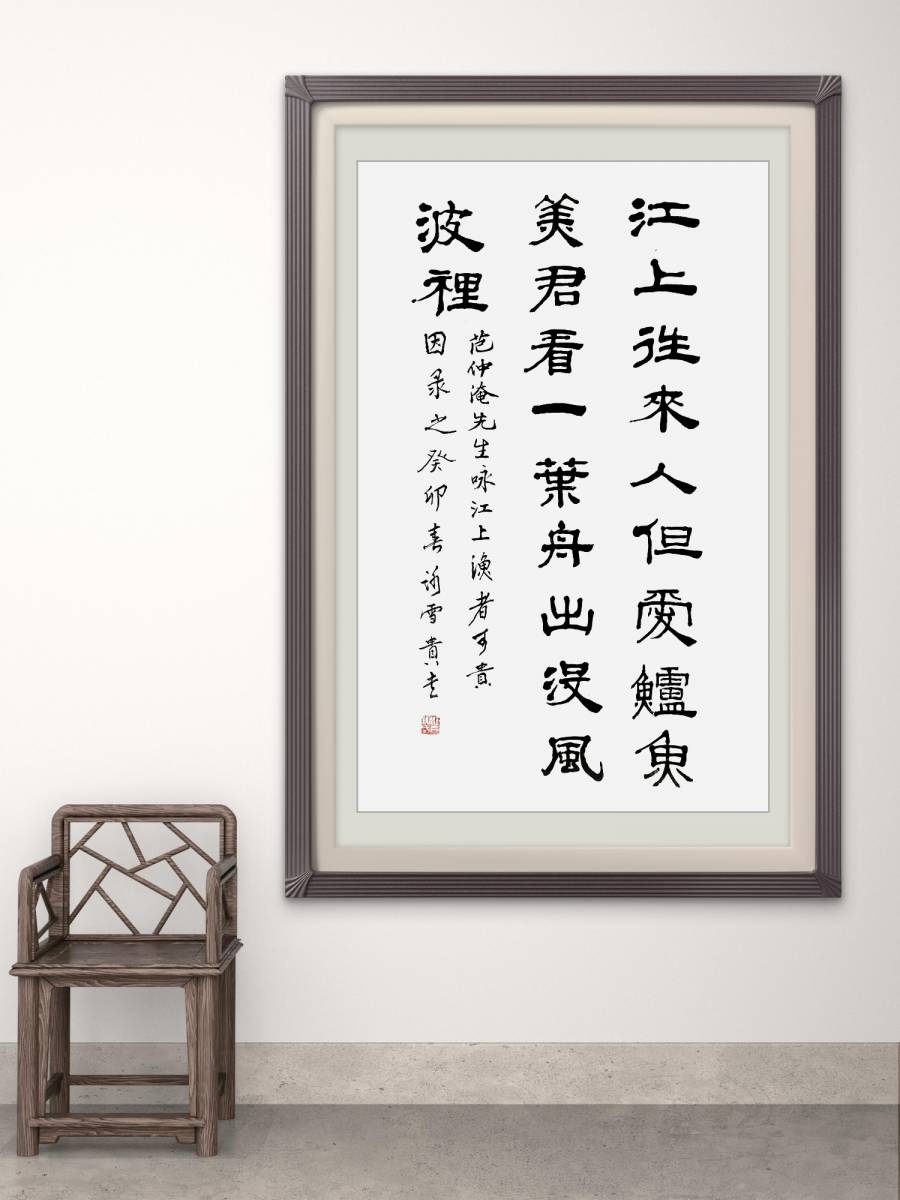 江上往來人但愛鱸魚
美君看一葉舟出没風
波裡
范仲淹先生咏江上漁者可貴
因录之癸卯春雪貴